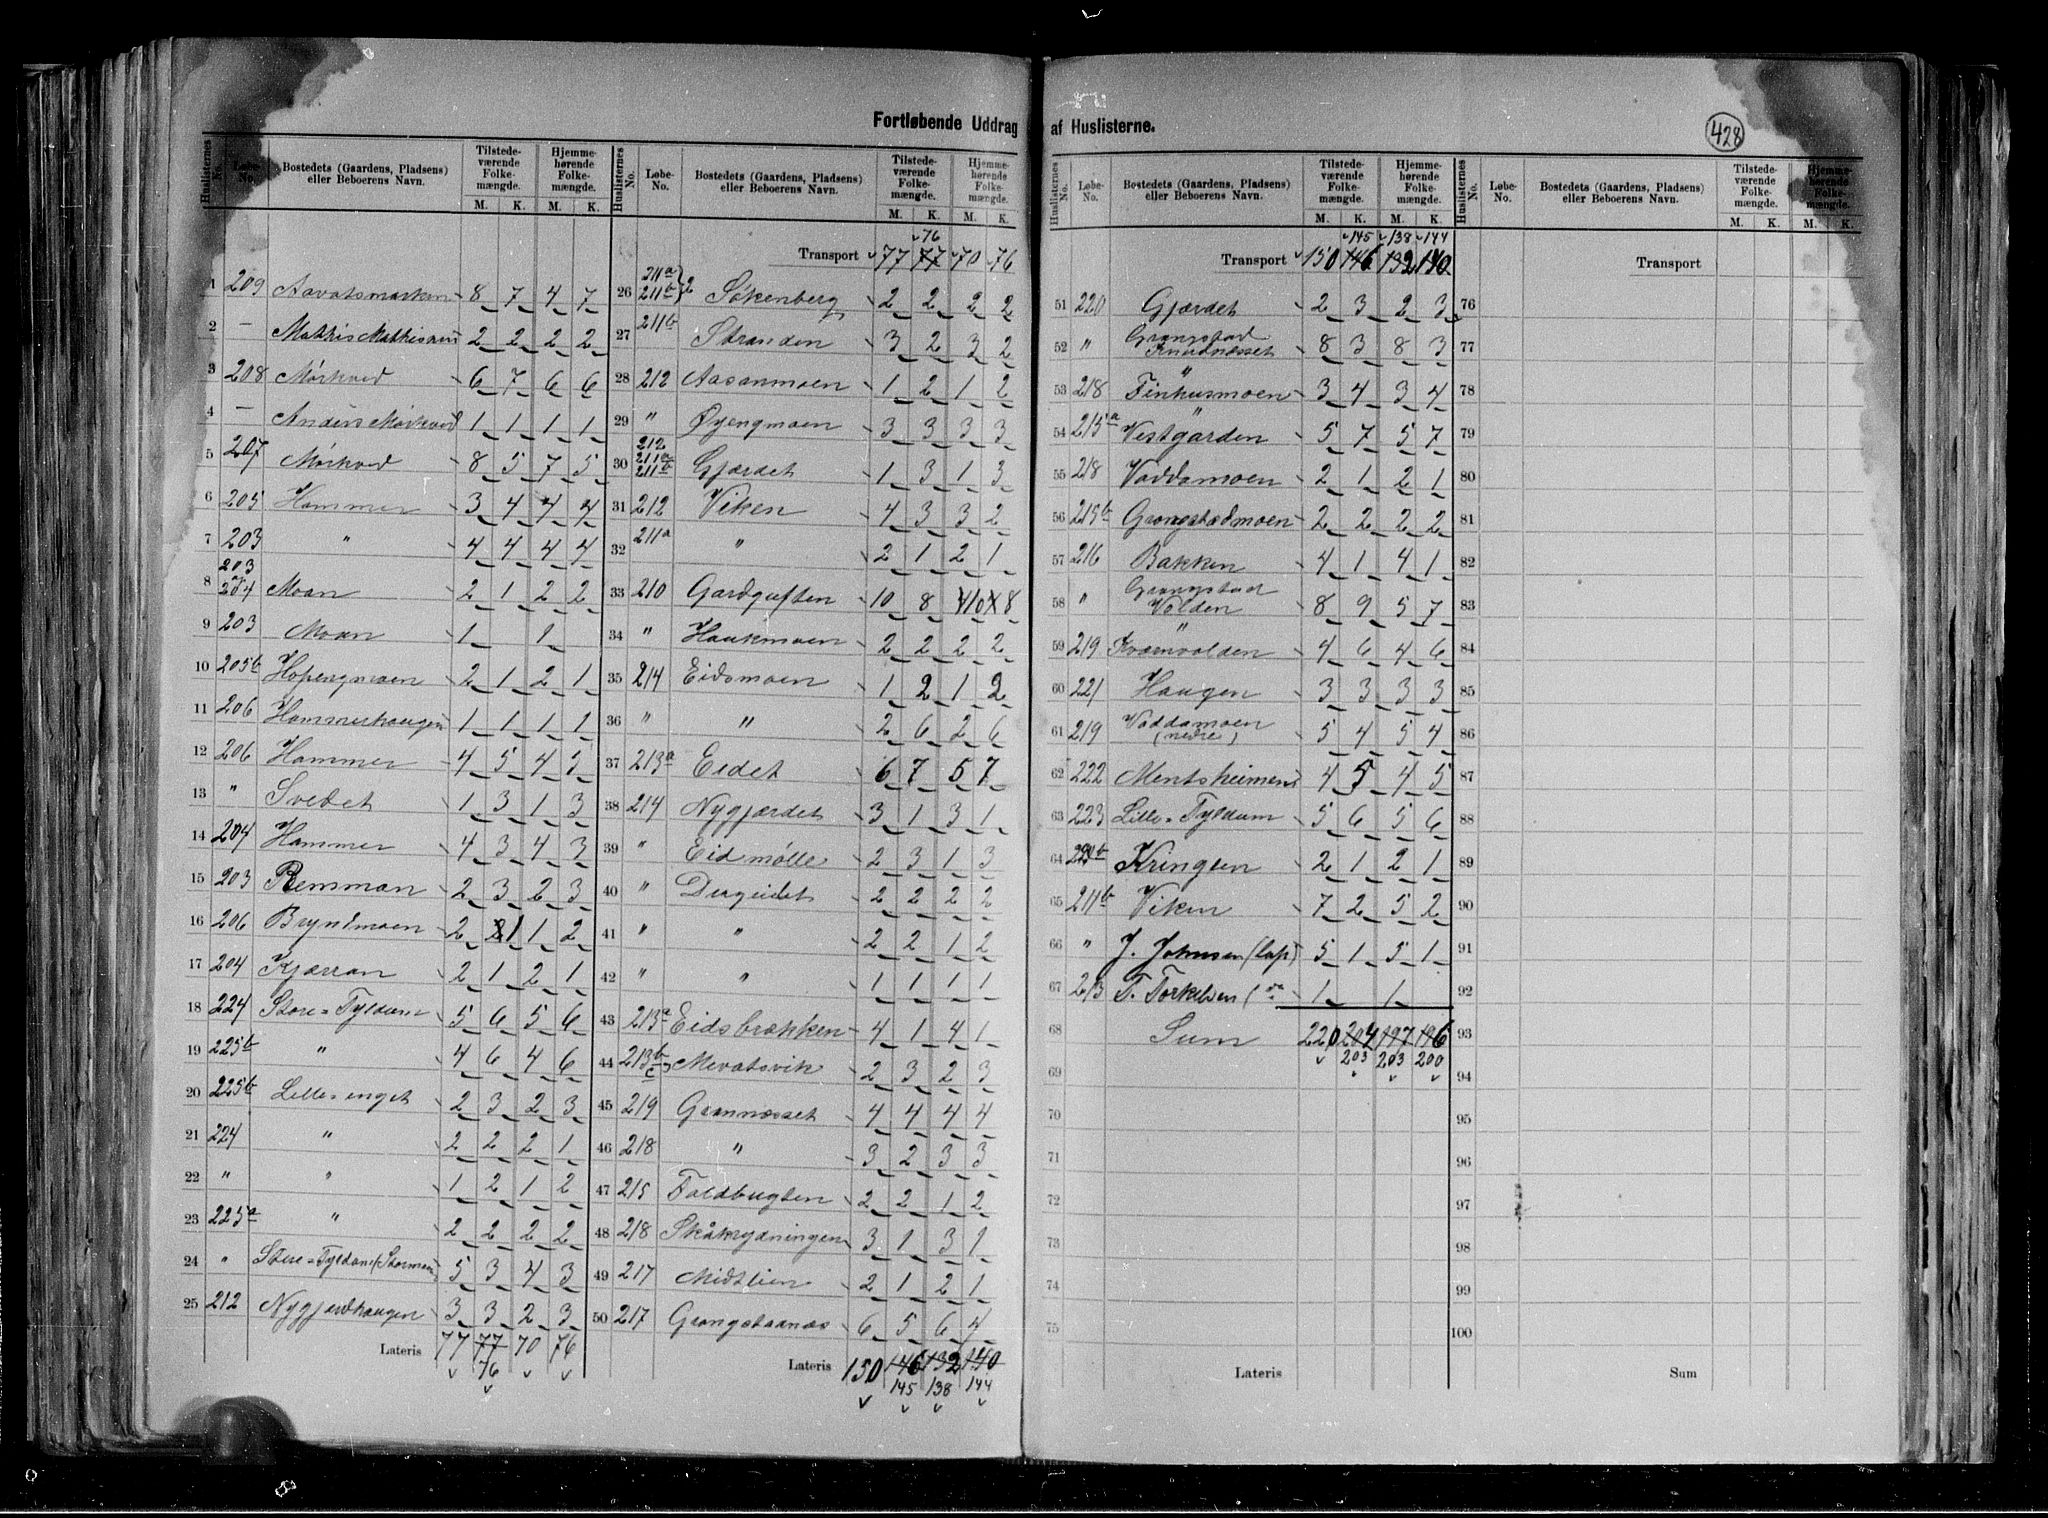 Fortløbende Uddrag af Huslisterne.
428
Huslisternes No. Løbe-No. Bostedets (Gaardens, Pladsens) eller Beboerens Navn. Tilstede-værende Folke-mængde. M. K. Hjemme-hørende Folke-mængde. M. K.
1 209 Aavatsmarken 8 7 4 7
2 — Mathis Mathisen 2 2 2 2
3 208 Mørkved 6 7 6 6
4 — Anders Mørkved 1 1 1 1
5 207 Mørkved 8 5 7 5
6 205 Hammer 3 4 4 4
7 203 " 4 4 4 4
8 203 og 204 Moan 2 1 2 2
9 203 Moan 1 1
10 205b Hopengmoen 2 1 2 1
11 206 Hammerhaugen 1 1 1 1
12 206 Hammer 4 5 4 5
13 " Svedet 1 3 1 3
14 204 Hammer 4 3 4 3
15 203 Remman 2 3 2 3
16 206 Bryndmoen 2 1 1 2
17 204 Kjærran 2 1 2 1
18 224 Store=Tyldum 5 6 5 6
19 225b " 4 6 4 6
20 225b Lille=enget 2 3 2 3
21 224 " 2 2 2 1
22 " " 1 2 1 2
23 225a " 2 2 2 2
24 " Store=Tyldum (Stormoen) 5 3 4 3
25 212 Nygjærdhaugen 3 3 2 3
Lateris 77 77 70 76
76
Huslisternes No. Løbe-No. Bostedets (Gaardens, Pladsens) eller Beboerens Navn. Tilstede-værende Folke-mængde. M. K. Hjemme-hørende Folke-mængde. M. K.
76
Transport 77 77 70 76
26 211a 211b } 2 Søkenberg 2 2 2 2
27 211b Stranden 3 2 3 2
28 212 Aasanmoen 1 2 1 2
29 " Øyengmoen 3 3 3 3
30 212 211a 211b Gjærdet 1 3 1 3
31 212 Viken 4 3 3 2
32 211a " 2 1 2 1
33 210 Gardguften 10 8 10 8
34 " Haukmoen 2 2 2 2
35 214 Eidsmoen 1 2 1 2
36 " " 2 6 2 6
37 213a Eidet 6 7 5 7
38 214 Nygjærdet 3 1 3 1
39 " Eid mølle 2 3 1 3
40 " Dergeidet 2 2 2 2
41 " " 2 2 1 2
42 " " 1 1 1 1
43 213a Eidsbrækken 4 1 4 1
44 213b c) Mevatsvik 2 3 2 3
45 219 Grannæsset 4 4 4 4
46 218 " 3 2 3 3
47 215 Foldbugten 2 2 1 2
48 218 Skåkrydningen 3 1 3 1
49 217 Midtlien 2 1 2 1
50 217 Grongstadnæs 6 5 6 4
Lateris 150 146 132 140
145 138 144
Huslisternes No. Løbe-No. Bostedets (Gaardens, Pladsens) eller Beboerens Navn. Tilstede-værende Folke-mængde. M. K. Hjemme-hørende Folke-mængde. M. K.
145 138 144
Transport 150 146 132 140
51 220 Gjærdet 2 3 2 3
52 " Grongstad Knudnæsset 8 3 8 3
53 218 " Finhusmoen 3 4 3 4
54 215a Vestgarden 5 7 5 7
55 218 Vaddamoen 2 1 2 1
56 215b Grongstadmoen 2 2 2 2
57 216 Bakken 4 1 4 1
58 " Grongstad Volden 8 9 5 7
59 219 Kværnvolden 4 6 4 6
60 221 Haugen 3 3 3 3
61 219 Vaddamoen (nedre) 5 4 5 4
62 222 Mentsheimen 4 5 4 5
63 223 Lille=Tyldum 5 6 5 6
64 Kringlen 2 1 2 1
65 211b Viken 7 2 5 2
66 " J. Johnsen (lap) 5 1 5 1
67 213 T. Torkelsen ( " 1 1
68 Sum 220 204 197 196
203 203 200
69
70
71
72
73
74
75
Lateris
Huslisternes No. Løbe-No. Bostedets (Gaardens, Pladsens) eller Beboerens Navn. Tilstede-værende Folke-mængde. M. K. Hjemme-hørende Folke-mængde. M. K.
Transport
76
77
78
79
80
81
82
83
84
85
86
87
88
89
90
91
92
93
94
95
96
97
98
99
100
Sum